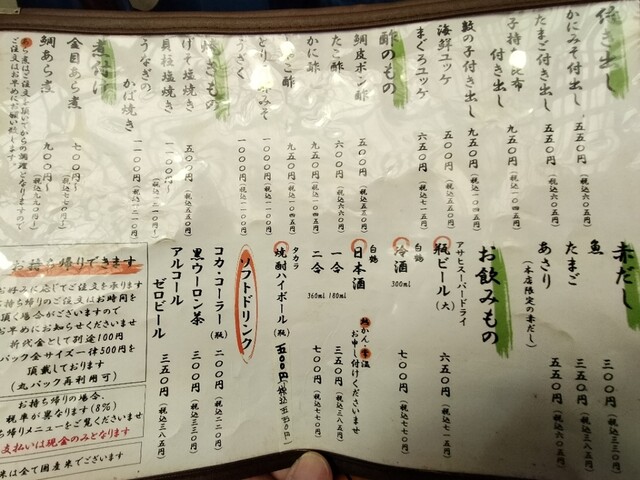 付き出し
かにみそ付き出し 五五〇円(税込六〇五円)
たまご付き出し 五五〇円(税込六〇五円)
付き出し 九五〇円(税込一〇四五円)
数の子付き出し 九五〇円(税込一〇四五円)
海鮮ユッケ 五五〇円(税込六〇五円)
まぐろユッケ 六五〇円(税込七一五円)
酢のもの
鯛皮ポン酢 五〇〇円(税込五五〇円)
たこ酢 六〇〇円(税込六六〇円)
かに酢 九五〇円(税込一〇四五円)
九五〇円(税込一〇四五円)
一〇〇〇円(税込一一〇〇円)
うざく 一〇〇〇円(税込一一〇〇円)
焼きもの
げそ塩焼き 五〇〇円(税込五五〇円)
貝柱塩焼き 一一〇〇円~(税込一二一〇円)
うなぎの
かば焼き 一一〇〇円(税込一二一〇円)
煮付け
金目あら煮 七〇〇円~(税込七七〇円~)
鯛あら煮 九〇〇円~(税込九九〇円~)
あら煮はご注文を頂いてからの調理となりますので
ご注文はお早めにお願い致します。
赤だし
魚 五五〇円
たまご 三五〇円(税込三八五円)
あさり 五五〇円
(本店限定の赤だし)
お飲みもの
アサヒスーパードライ
瓶ビール(大) 六五〇円(税込七一五円)
白鶴
冷酒 300ml 七〇〇円(税込七七〇円)
白鶴
日本酒 熱かん・常温 お申し付けくださいませ
一合 180ml 三五〇円(税込三八五円)
二合 360ml 七〇〇円(税込七七〇円)
タカラ
焼酎ハイボール(瓶) 五〇〇円(税込五五〇円)
ソフトドリンク
コカ・コーラー(瓶) 二〇〇円(税込二二〇円)
黒ウーロン茶 三〇〇円(税込三三〇円)
アルコール
ゼロビール 三五〇円(税込三八五円)
お持ち帰りできます
お好みに応じてご注文を承ります
お持ち帰りのご注文はお時間を
頂く場合がございますので
お早めにお知らせくださいませ
折代金として別途100円
パック全サイズ一律500円を
頂戴しております
(丸パック再利用可)
お持ち帰りの場合、
税率が異なります(8%)
持ち帰りメニューをご覧くださいませ
支払いは現金のみとなります
米は全て国産米でございます